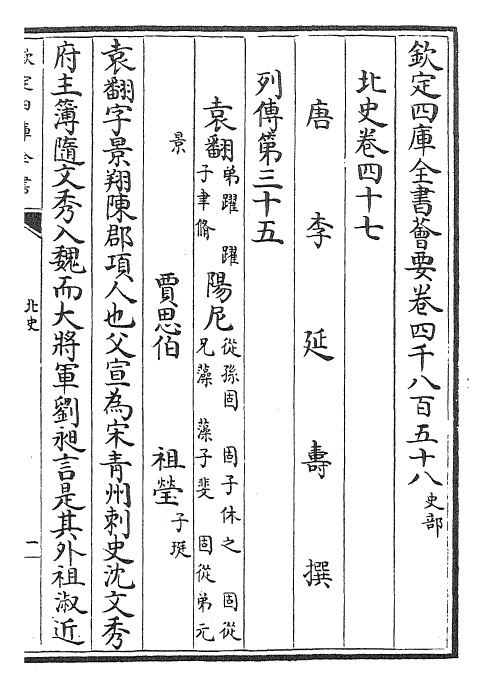 欽定四庫全書薈要卷四千八百五十八史部
北史卷四十七
唐李延壽撰
列傳第三十五
袁翻弟躍 躍子聿脩 陽尼從孫固 固子休之 固從兄藻 藻子斐 固從弟元景
賈思伯 祖瑩子珽
袁翻字景翔陳郡項人也父宣為宋青州刺史沈文秀
府主簿隨文秀入魏而大將軍劉昶言是其外祖淑近
欽定四庫全書
北史
一